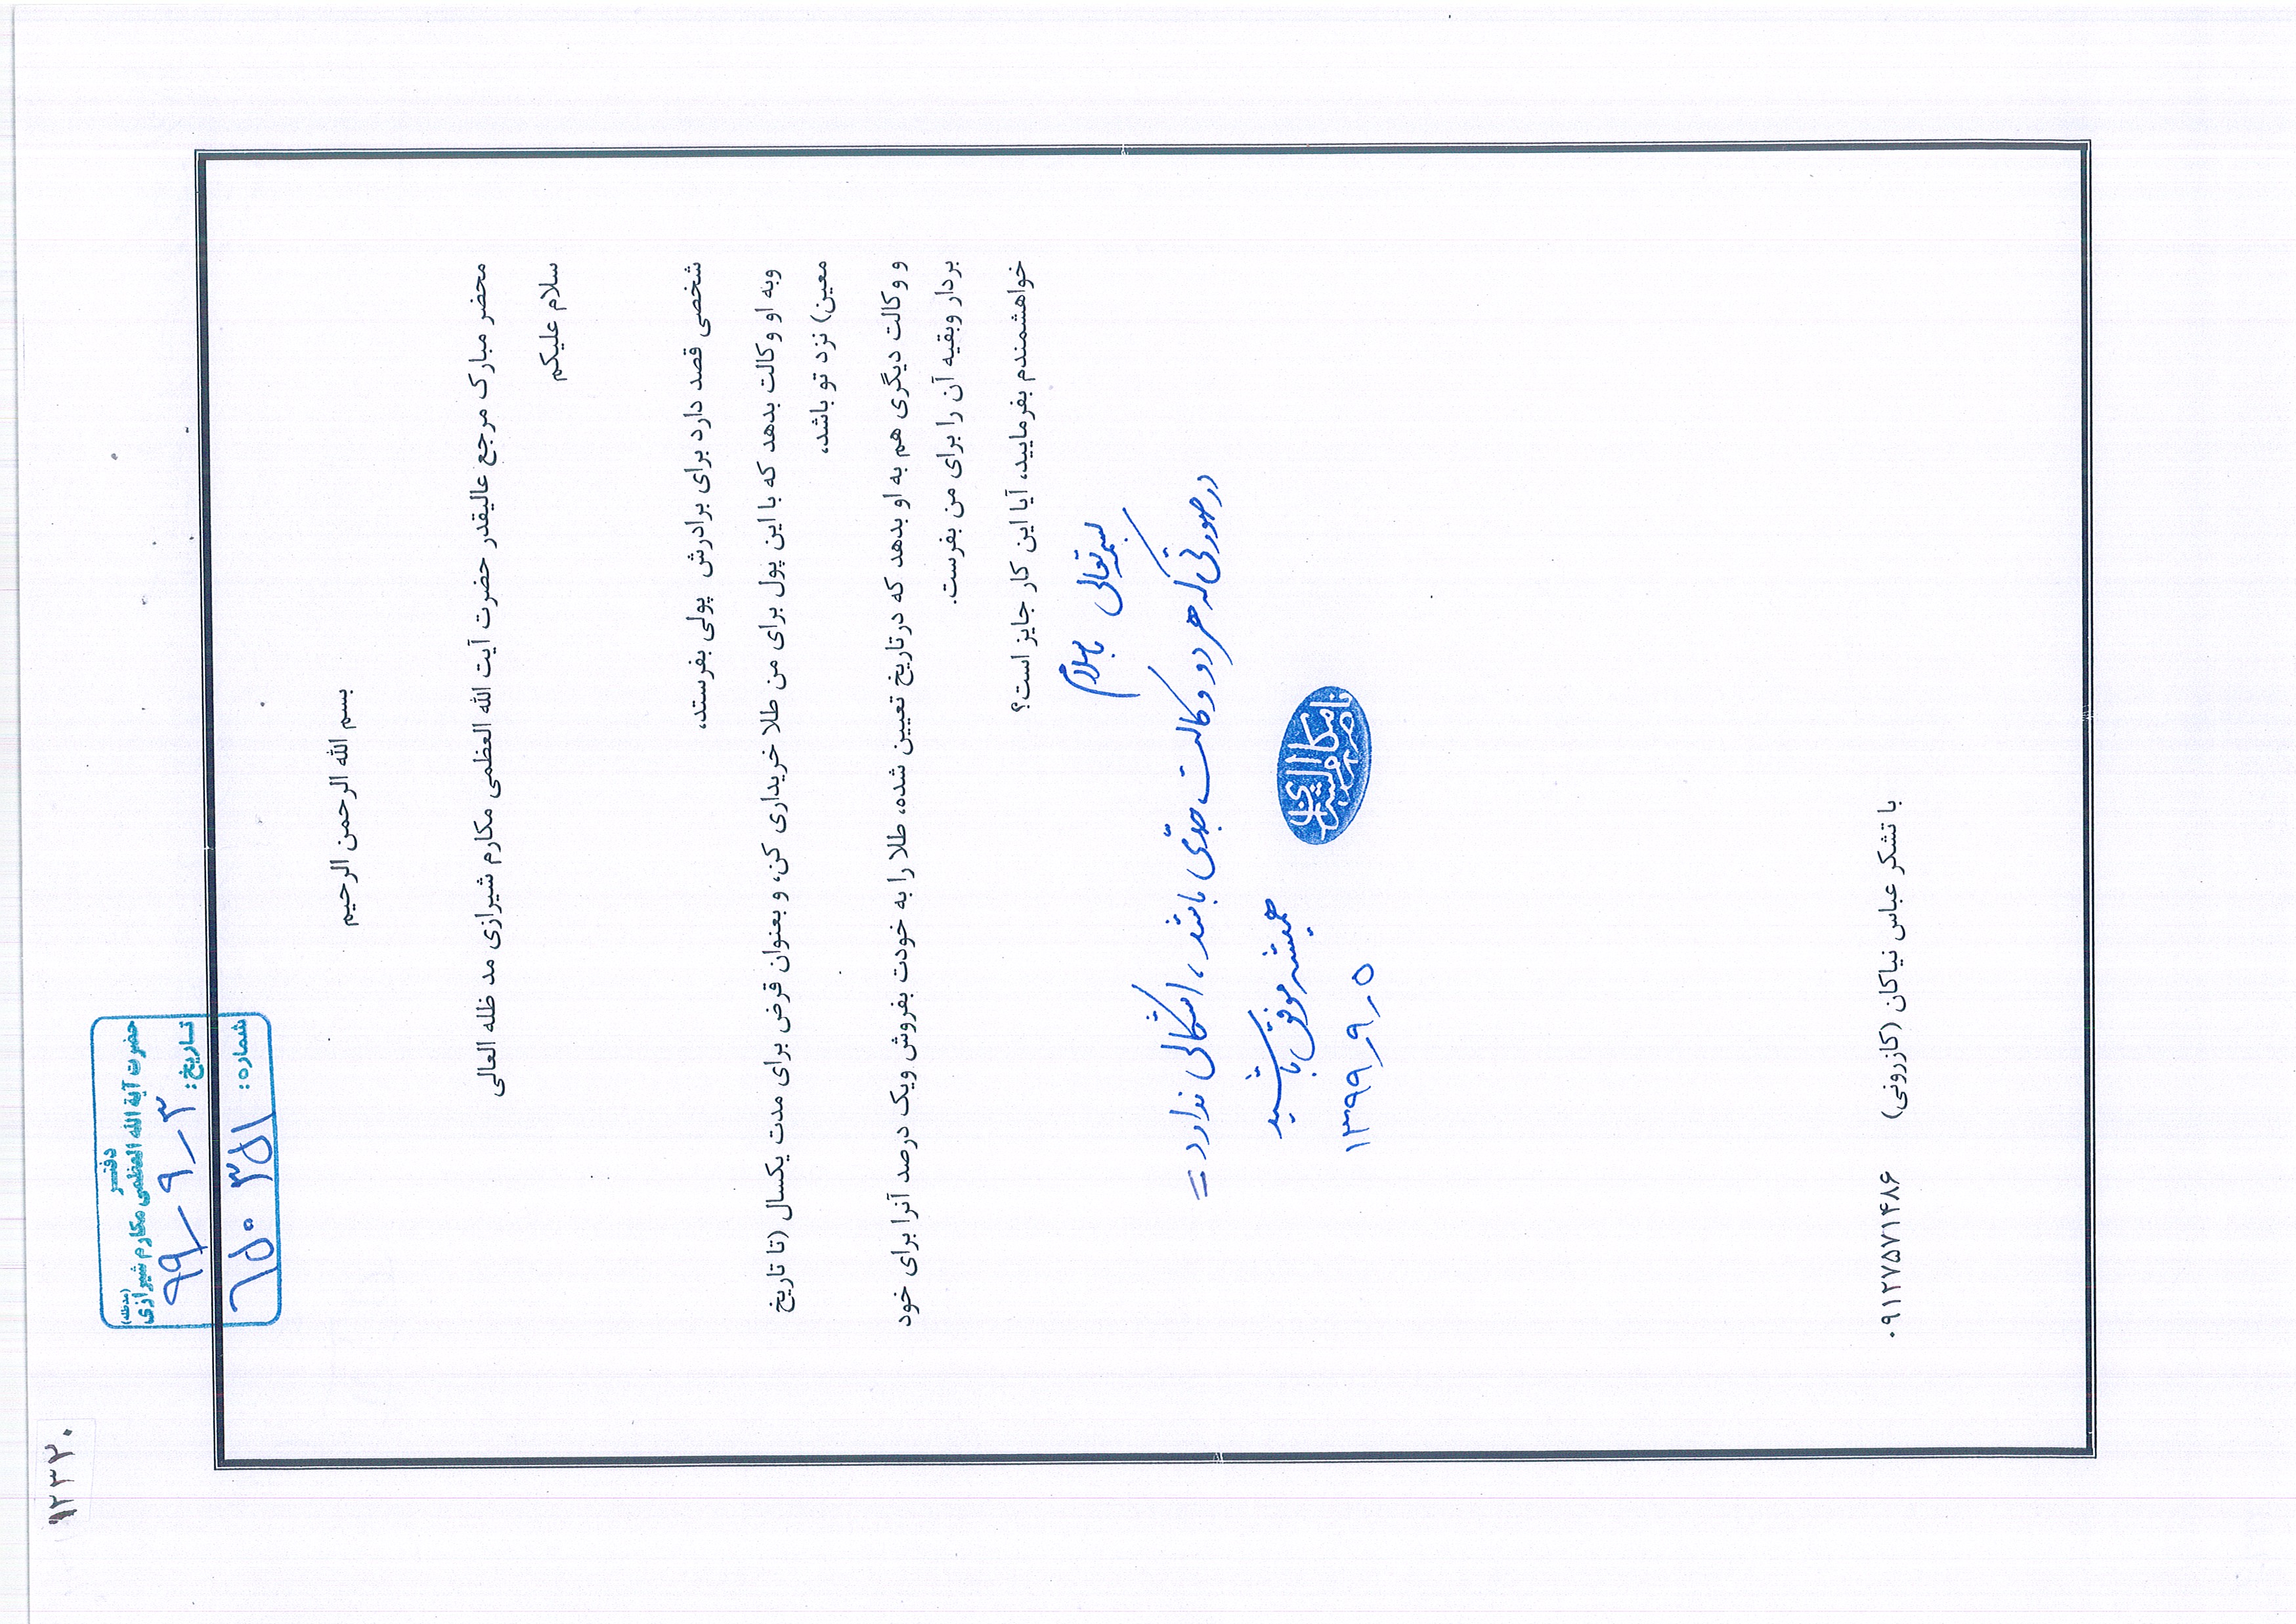 ۱۲۳۲۰
دفتر
حضرت آیة الله العظمی مکارم شیرازی (مدظله)
تاریخ: ۹۹-۹-۳
شماره: ۶۵۰۳۵۱
بسم الله الرحمن الرحیم
محضر مبارک مرجع عالیقدر حضرت آیت الله العظمی مکارم شیرازی مد ظله العالی
سلام علیکم
شخصی قصد دارد برای برادرش پولی بفرستد،
وبه او وکالت بدهد که با این پول برای من طلا خریداری کن، و بعنوان قرض برای مدت یکسال (تا تاریخ
معین) نزد تو باشد،
و وکالت دیگری هم به او بدهد که درتاریخ تعیین شده، طلا را به خودت بفروش ویک درصد آنرا برای خود
بردار وبقیه آن را برای من بفرست.
خواهشمندم بفرمایید، آیا این کار جایز است؟
بسمه تعالی
باسلام
در صورتی که هر دو وکالت جدّی باشد، اشکالی ندارد
همیشه موفق باشید
۱۳۹۹-۹-۵
ناصر مکارم شیرازی
با تشکر عباس نیاکان (کازرونی) ۰۹۱۲۷۵۷۱۴۸۶